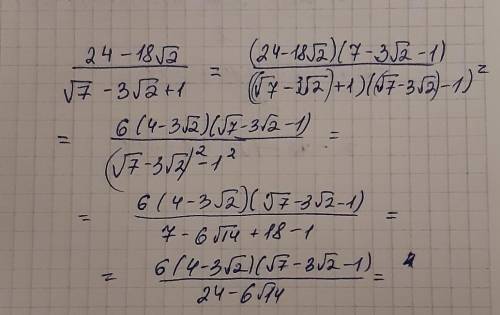 (24 − 18√2) / (√7 − 3√2 + 1) = (24 − 18√2)(7 − 3√2 − 1) / ((√7 − 3√2) + 1)((√7 − 3√2) − 1)²
= 6(4 − 3√2)(√7 − 3√2 − 1) / (√7 − 3√2)² − 1² =
= 6(4 − 3√2)(√7 − 3√2 − 1) / 7 − 6√14 + 18 − 1 =
= 6(4 − 3√2)(√7 − 3√2 − 1) / 24 − 6√14 =